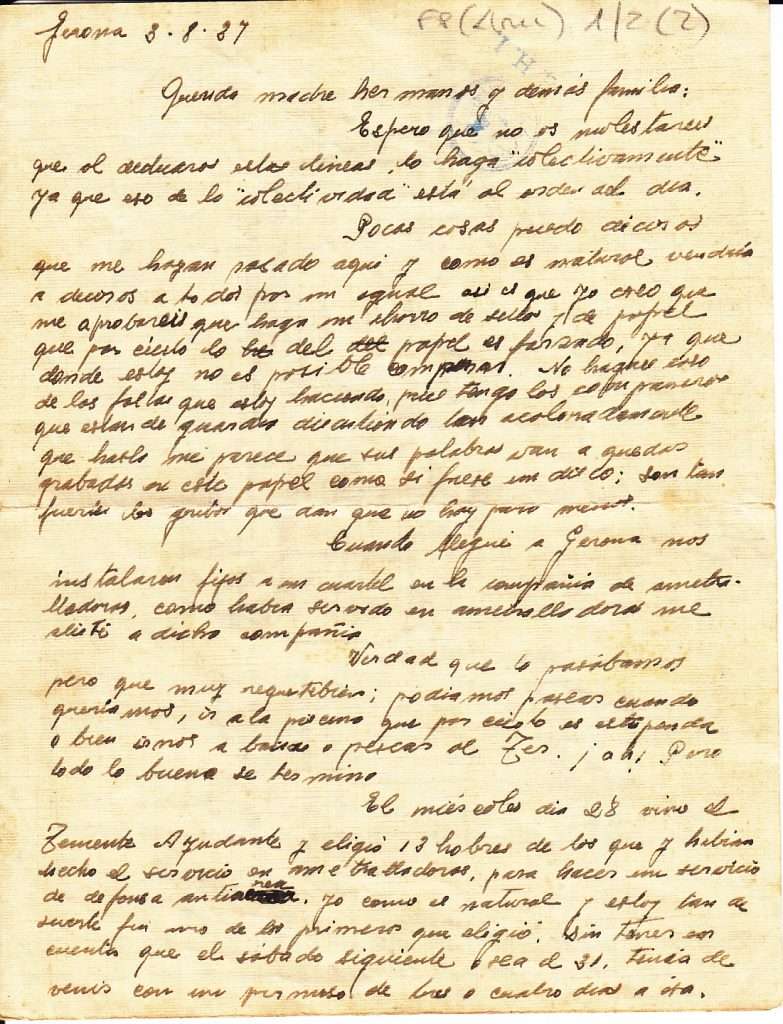 Gerona 3-8-37
F8 (Arm) 1/2 (2)
Querida madre hermanos y demás familia:
Espero que no os molestareis
que al dedicaros estas lineas, lo haga "colectivamente"
ya que eso de la "colectividad" está al orden del dia.
Pocas cosas puedo deciros
que me hayan pasado aqui y como es natural vendria
a deciros a todos por un igual asi es que yo creo que
me aprobareis que haga un ahorro de sellos y de papel
que por cierto lo del papel es forzado, ya que
donde estoy no es posible comprar. No hagais caso
de las faltas que estoy haciendo, pues tengo los compañeros
que estan de guardia discutiendo tan acaloradamente
que hasta me parece que sus palabras van a quedar
grabadas en este papel como si fuese un disco; son tan
fuertes los gritos que dan que no hay para menos.
Cuando llegué a Gerona nos
instalaron fijos a un cuartel en la compañia de ametra-
lladoras, como habia servido en ametralladoras me
alisté a dicha compañia
Verdad que lo pasábamos
pero que muy requetebien; podiamos pasear cuando
queriamos, ir a la piscina que por cierto es estupenda
o bien irnos a bañar o pescar al Ter. ¡ah! Pero
todo lo bueno se termina
El miércoles dia 28 vino el
Teniente Ayudante y eligió 13 hobres de los que y habian
hecho el servicio en ametralladoras, para hacer un servicio
de defensa antiaerea. Yo como es natural y estoy tan de
suerte fui uno de los primeros que eligió, sin tener en
cuenta que el sábado siguiente osea el 31, tenia de
venir con un permiso de tres o cuatro dias a esa.